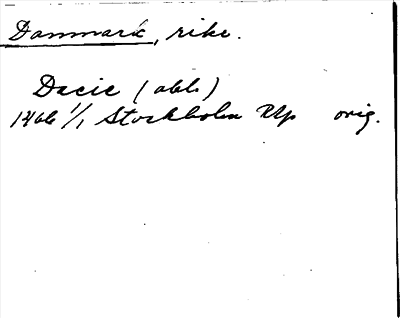 Danmark, rike.
Dacie (abl.)
1466 1/1 Stockholm RAp orig.